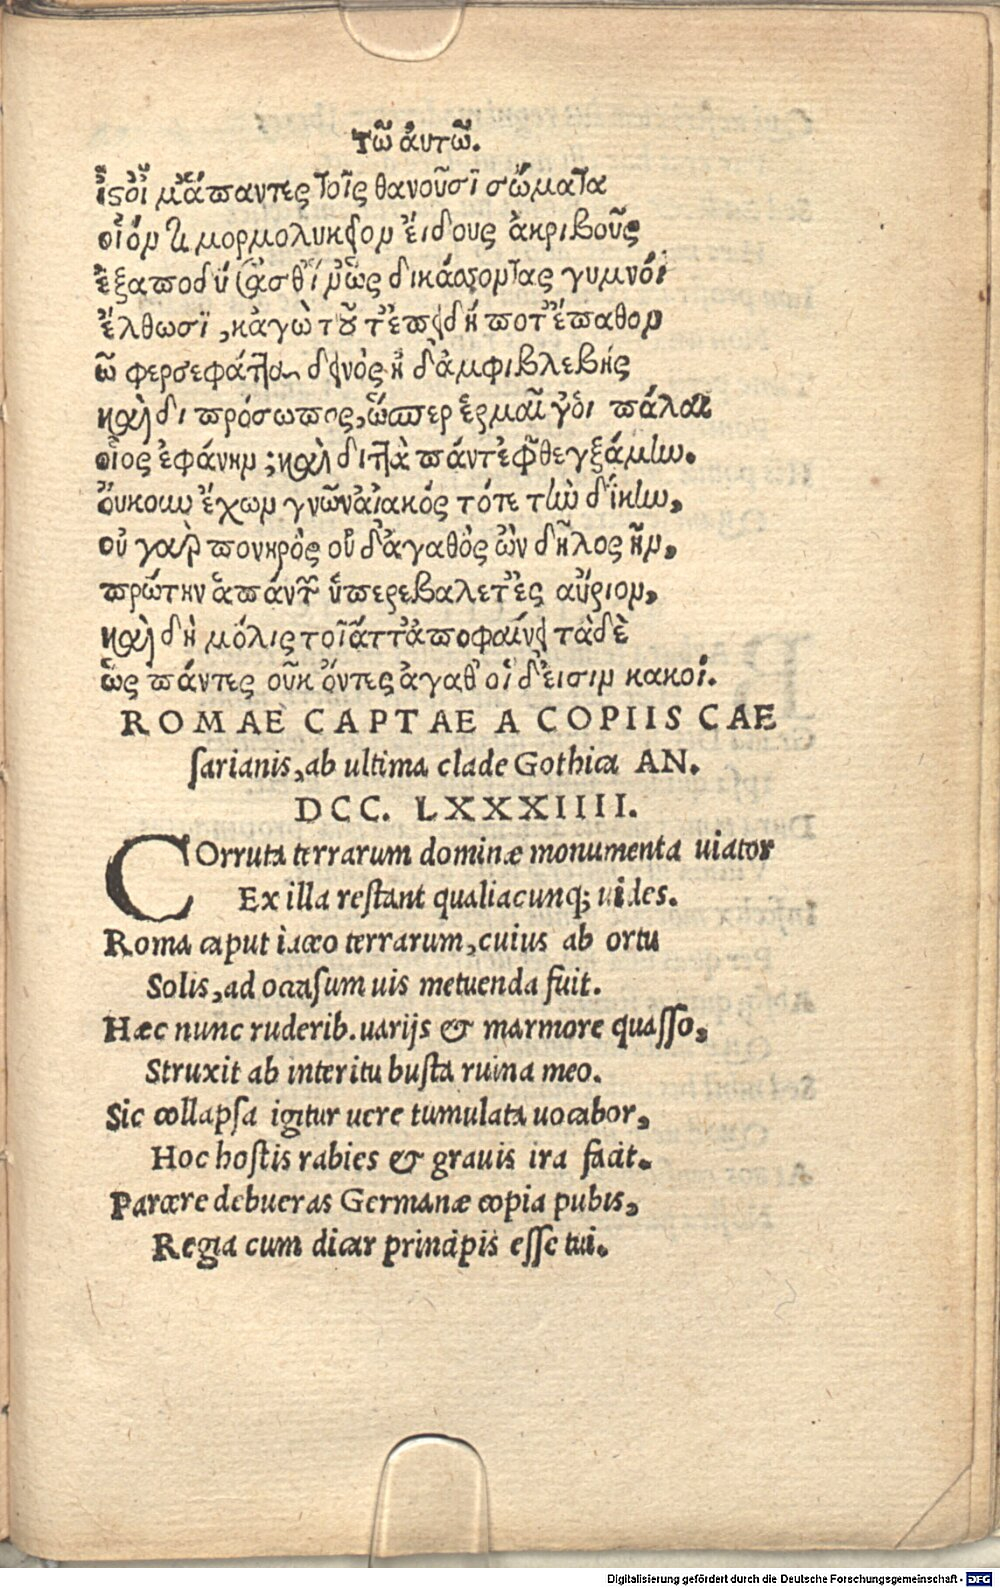 τῶ ἀυτῶ.
ἶςοἶ μᾶ ἅπαντες τοῖς θανοῦσὶ σώματα
οἷόν τι μορμολυκεῖον ἔιδους ἀκριβοῦς
γυμνόὶ
ἔλθωσϊ, κἀγὼ τότ' ἐπειδή ποτ' ἔπαθον
ὦ φερσεφάττα δεινὸς ἠ δ' ἀμφιβλεβής
καὶ δι πρόσωπος, ὥσπερ ἑρμαῖ γ' ὁι πάλαι
οἷος ἐφάνην; καὶ διττὰ πάντ' ἐφθεγξάμην.
ὄυκουν ἔχων γνῶναἀιακός τότε τὴν δίκην,
οὐ γαρ πονηρὸς οὐ δ' ἀγαθὸς ὢν δῆλος ἦν,
πρώτην ἁπάντ ὑπερεβαλετ' ἐς αὔριον,
καὶ δὴ μόλις τοῖἄττ' ἀποφαίνει τὰδὲ
ὥς πάντες οὔκ ὄντες ἀγαθ' οἱ δ' εισιν κακοί.
ROMAE CAPTAE A COPIIS CAE
sarianis, ab ultima clade Gothica AN.
DCC. LXXXIIII.
COrruta terrarum dominæ monumenta uiator
Ex illa restant qualiacunq; uides.
Roma caput iaceo terrarum, cuius ab ortu
Solis, ad occasum uis metuenda fuit.
Hæc nunc ruderib. uarijs & marmore quasso,
Struxit ab interitu busta ruina meo.
Sic collapsa igitur uere tumulata uocabor,
Hoc hostis rabies & grauis ira facit.
Parcere debueras Germanæ copia pubis,
Regia cum dicar principis esse tui.
Digitalisierung gefördert durch die Deutsche Forschungsgemeinschaft - DFG